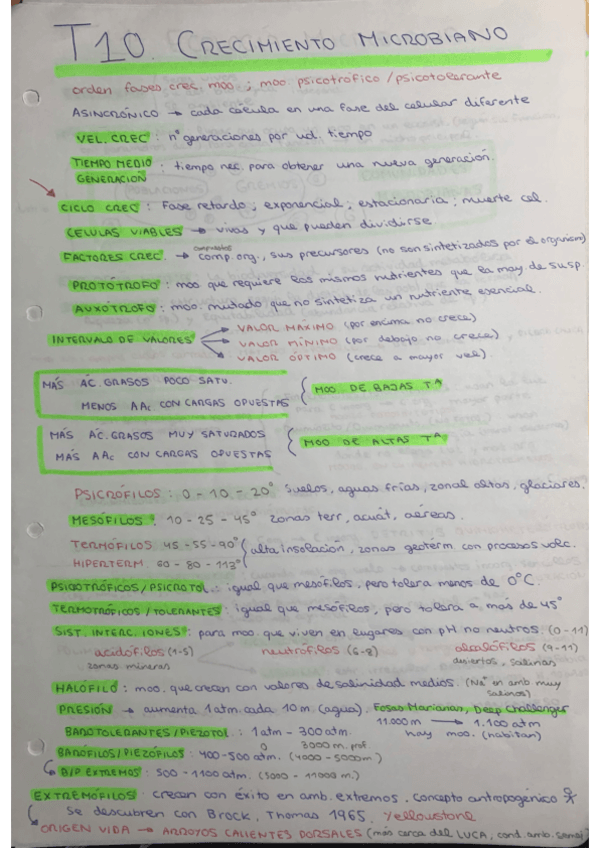 T10. CRECIMIENTO MICROBIANO
orden fases crec. moo. ; moo. psicotrófico / psicotolerante
ASINCRÓNICO → cada célula en una fase del celular diferente
VEL. CREC : nº generaciones por ud. tiempo
TIEMPO MEDIO GENERACIÓN : tiempo nec. para obtener una nueva generación.
CICLO CREC : Fase retardo ; exponencial ; estacionaria ; muerte cel.
CÉLULAS VIABLES → vivas y que pueden dividirse
FACTORES CREC. → comp. org., sus precursores (no son sintetizados por el organism)
PROTÓTROFO : moo que requiere los mismos nutrientes que la may. de su sp.
AUXÓTROFO : moo. mutado que no sintetiza un nutriente esencial.
VALOR MÁXIMO (por encima no crece)
INTERVALO DE VALORES → VALOR MÍNIMO (por debajo no crece)
VALOR ÓPTIMO (crece a mayor vel).
MÁS ÁC. GRASOS POCO SATU.
MENOS AAc. CON CARGAS OPUESTAS { MOO. DE BAJAS Tª
MÁS ÁC. GRASOS MUY SATURADOS
MÁS AAc CON CARGAS OPUESTAS { MOO DE ALTAS Tª
PSICRÓFILOS : 0 - 10 - 20° suelos, aguas frías, zonas altas, glaciares.
MESÓFILOS : 10 - 25 - 45° zonas terr, acuát, aéreas.
TERMÓFILOS 45 - 55 - 90° { alta insolación, zonas geoterm con procesos volc.
HIPERTERM. 60 - 80 - 113°
PSICOTRÓFICOS / PSICROTOL. : igual que mesófilos, pero tolera menos de 0°C.
TERMOTRÓFICOS / TOLERANTES : igual que mesófilos, pero tolera a más de 45°
SIST. INTERC. IONES : para moo que viven en lugares con pH no neutros. (0 - 11)
acidófilos (1-5) neutrófilos (6-8) alcalófilos (9-11)
zonas mineras desiertos, salinas
HALÓFILO : moo. que crecen con valores de salinidad medios. (Na⁺ en amb muy salinos)
PRESIÓN → aumenta 1 atm cada 10 m (agua). Fosas Marianas, Deep Challenger
11.000 m → 1.100 atm
BAROTOLERANTES / PIEZOTOL : 1 atm - 300 atm hay moo. (habitan)
0 3000 m. prof
BARÓFILOS / PIEZÓFILOS : 400 - 500 atm. (4000 - 5000 m)
B/P EXTREMOS : 500 - 1100 atm. (5000 - 11000 m.)
EXTREMÓFILOS : crecen con éxito en amb. extremos. Concepto antropogénico
Se descubren con Brock, Thomas 1965. Yellowstone
ORIGEN VIDA → ARROYOS CALIENTES DORSALES (más cerca del LUCA, cond. amb.